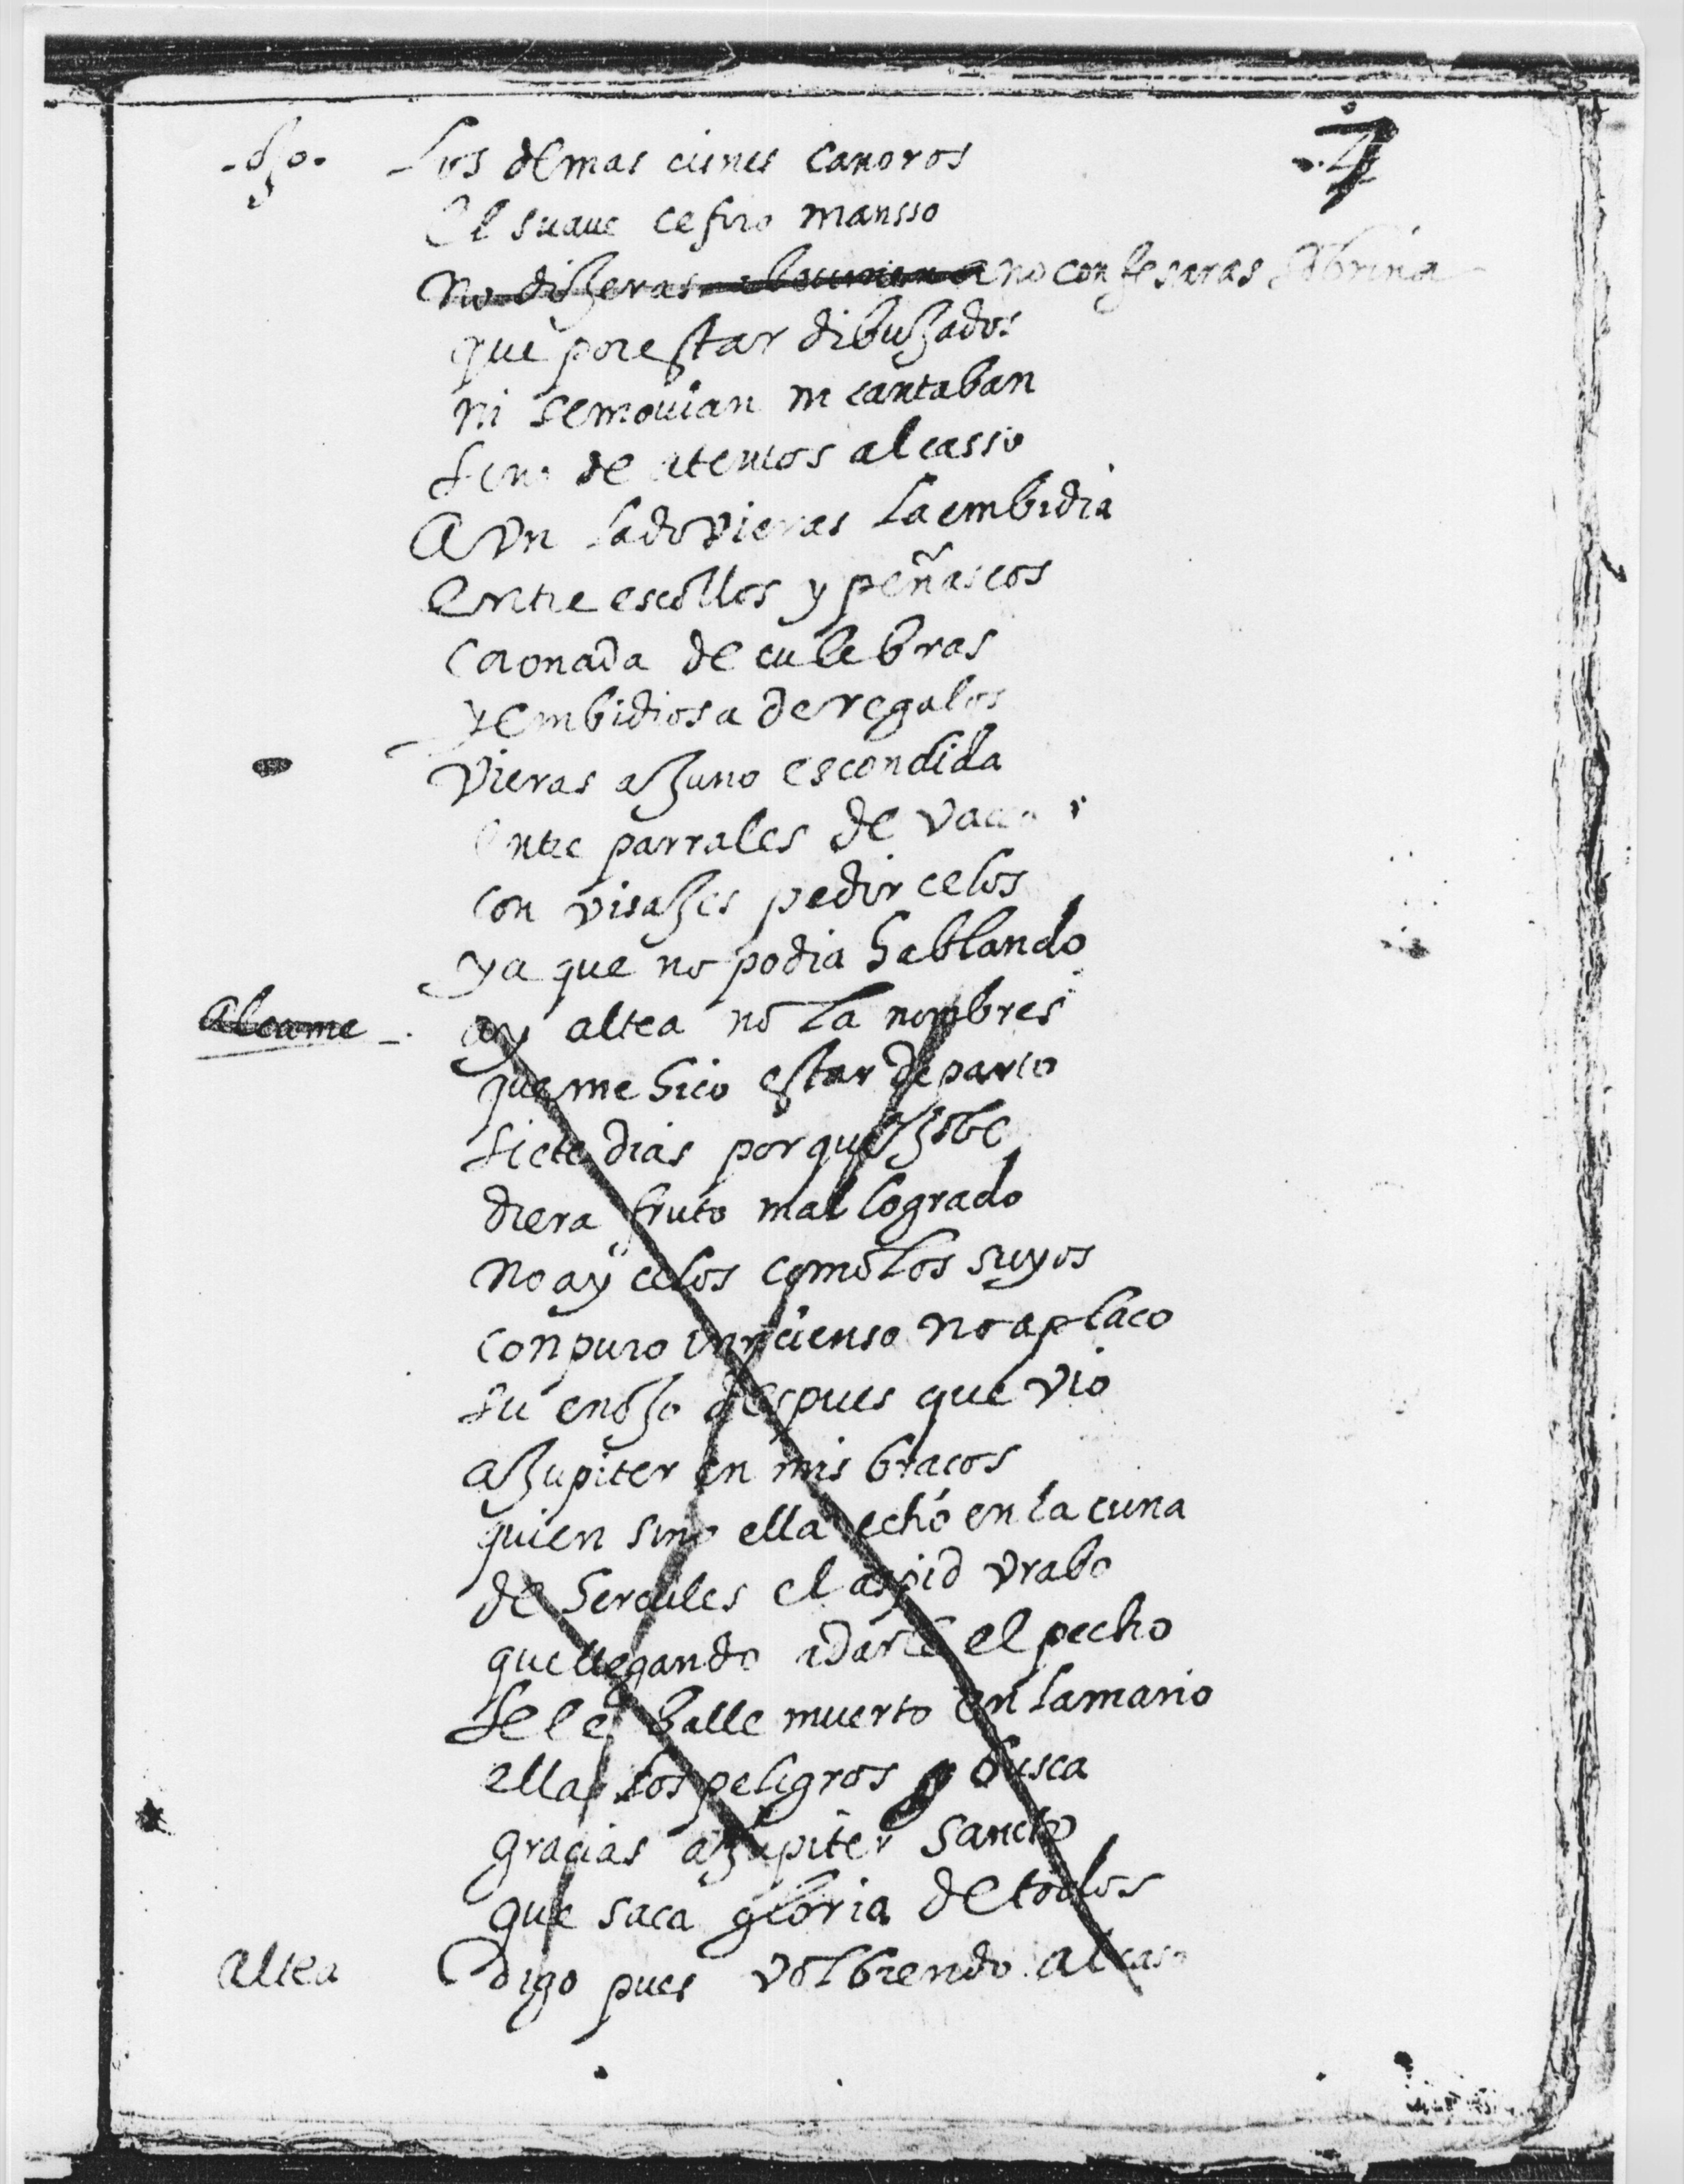 los demas cisnes canoros
el suaue cefiro mansso
no dijeras no confesaras
que por estar dibujados
ni se mouian ni cantaban
sino de atentos al casso
a vn lado vieras la embidia
entre escollos y peñascos
coronada de culebras
y embidiosa de regalos
vieras a juno escondida
entre parrales de
con visajes pedir celos
ya que no podia hablando
ay altea no la nombres
que me hico estar de parto
siete dias porque
diera fruto mal logrado
no ay celos como los suyos
con puro incienso no aplaco
su enojo despues que vio
a jupiter en mis bracos
quien sino ella echó en la cuna
de hercules el aspid
que llegando a darle el pecho
se le halle muerto en la mano
ella los peligros busca
gracias a jupiter sancto
que saca gloria de todos
Altea digo pues volbiendo al caso